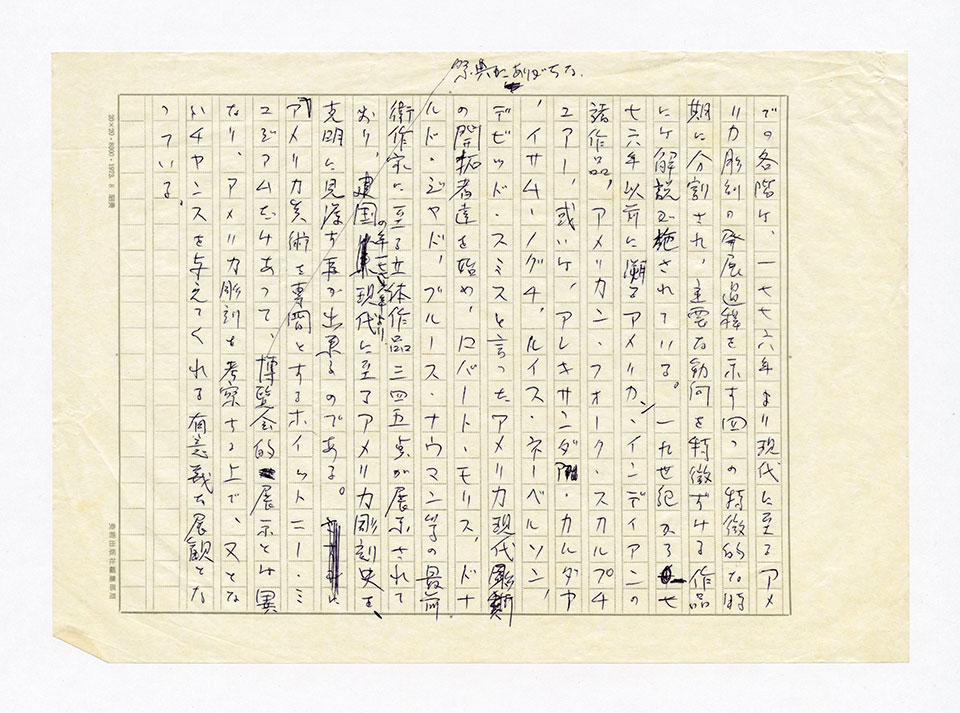 祭典にありがちな
での各階は、一七七六年より現代に至るアメ
リカ彫刻の発展過程を示す四つの特徴的な時
期に分割され、主要な動向を特徴ずける作品
には解説が施されている。一九世紀から七
七六年以前に溯るアメリカン・インディアンの
諸作品、アメリカン・フォーク・スカルプチ
ュアー、或いは、アレキサンダー・カルダー
、イサム・ノグチ、ルイス・ネーベルソン、
デビッド・スミスと言ったアメリカ現代彫刻
の開拓者達を始め、ロバート・モリス、ドナ
ルド・ジャド、ブルース・ナウマン等の最前
衛作家に至る立体作品三四五点が展示されて
おり、建国の年一七七六年より現代に至るアメリカ彫刻史を、
克明に見渡す事が出来るのである。
アメリカ美術を専門とするホイットニー・ミ
ュージアムだけあって、博覧会的展示とは異
なり、アメリカ彫刻を考察する上で、又とな
いチャンスを与えてくれる有意義な展観とな
っている。
20×20・8000・1973. 8
美術出版社編集部用